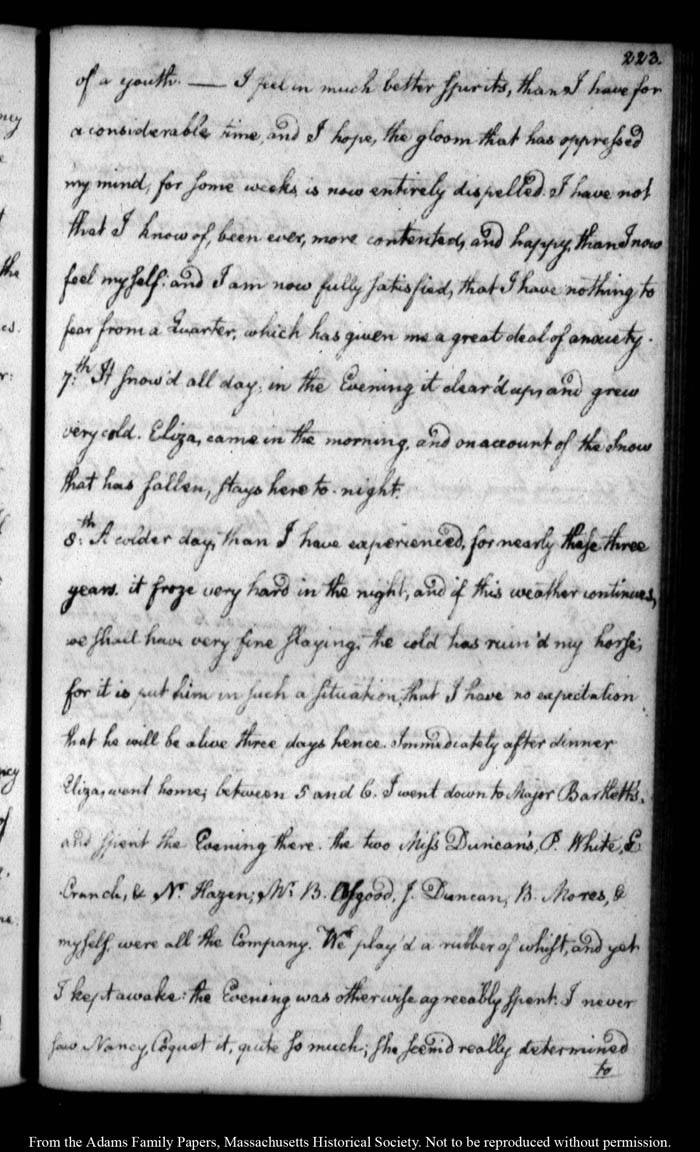 223.
of a youth. — I feel in much better spirits, than I have for
a considerable time, and I hope, the gloom that has oppressed
my mind, for some weeks, is now entirely dispelled. I have not
that I know of, been ever, more contented, and happy, than I now
feel myself. and I am now fully satisfied, that I have nothing to
fear from a Quarter, which has given me a great deal of anxiety.
7:th It snow'd all day; in the Evening it clear'd up, and grew
very cold. Eliza, came in the morning, and on account of the Snow
that has fallen, stays here to-night.
8:th A colder day, than I have experienced, for nearly these three
years. it froze very hard in the night, and if this weather continues,
we shall have very fine slaying, the cold has ruin'd my horse;
for it is put him in such a situation, that I have no expectation
that he will be alive three days hence. Immediately after dinner
Eliza, went home; between 5 and 6. I went down to Major Bartlett's,
and spent the Evening there. the two Miss Duncan's, P. White, E
Cranch, & N. Hazen; Mr. B. Osgood, J. Duncan, B. Mores, &
myself, were all the Company. We play'd a rubber of whist, and yet
I kept awake: the Evening was otherwise agreeably spent. I never
saw Nancy, Coquet it, quite so much; she seem'd really determined
to
ncy
the
es.
r:
ncy
of
From the Adams Family Papers, Massachusetts Historical Society. Not to be reproduced without permission.